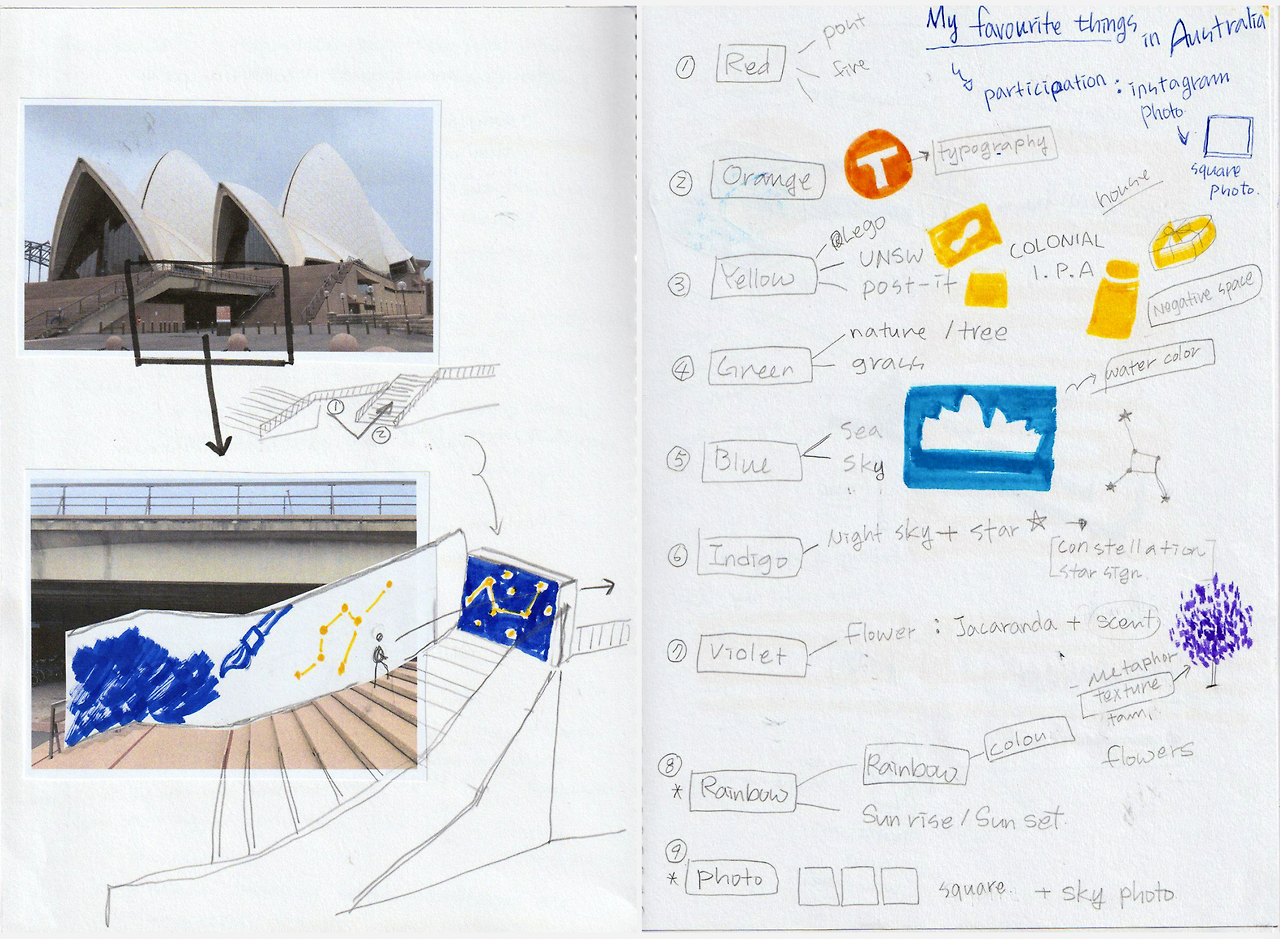 ①
②
My favourite things in Australia
participation : instagram photo
square photo.
① Red
fire
② Orange
T
typography
house
③ Yellow
Lego
UNSW
post-it
COLONIAL
I.P.A
Negative space
④ Green
nature / tree
grass
water color
⑤ Blue
Sea
Sky
⑥ Indigo
Night sky + star
Constellation
star sign.
⑦ Violet
Flower : Jacaranda + scent
metaphor
texture
flowers
⑧
* Rainbow
Rainbow
colour
Sun rise / Sun set.
⑨
* photo
square. + sky photo.